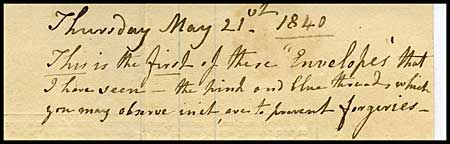 Thursday May 21st. 1840
This is the first of these "Envelopes" that
I have seen — the pink and blue threads which
you may observe in it, are to prevent forgeries —